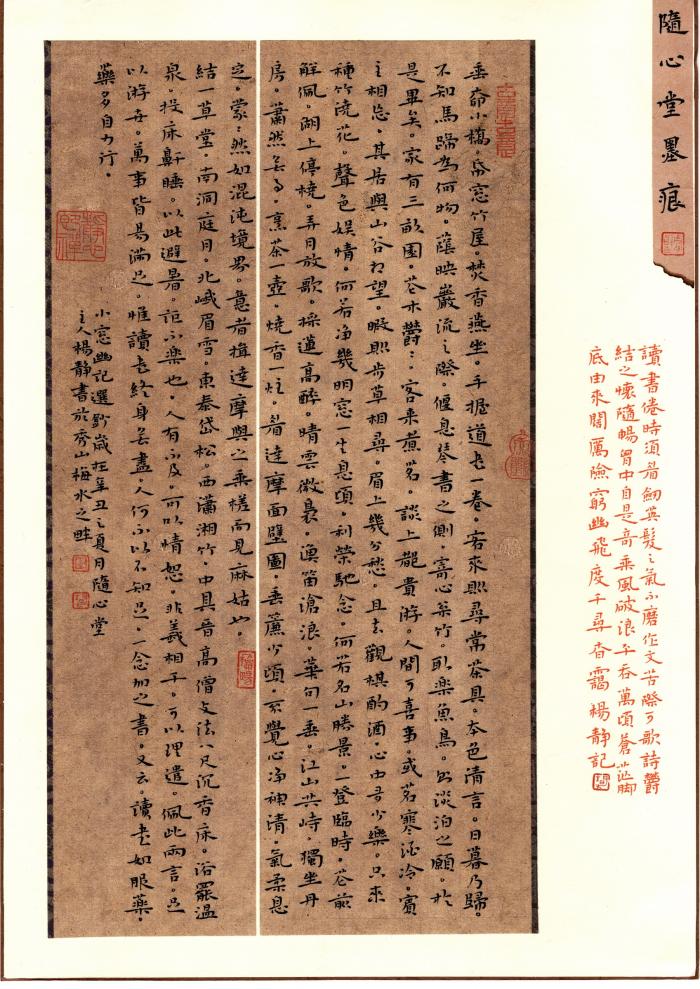 隨心堂墨痕
讀書倦時須看劍英髮之氣不磨作文苦際可歌詩鬱
結之懷隨暢胸中自是奇乘風破浪平吞萬頃蒼茫腳
底由來闊歷險窮幽飛度千尋杳靄楊静記
垂柳小橋。紙窓竹屋。焚香燕坐。手握道書一卷。客來則尋常茶具。本色清言。日暮乃歸。
不知馬蹄為何物。蔭映巖流之際。偃息琴書之側。寄心松竹。取樂魚鳥。則淡泊之願。於
是畢矣。家有三畝園。花木鬱鬱。客來煮茗。談上都貴游。人間可喜事。或茗寒酒冷。賓
主相忘。其居與山谷相望。暇則步草相尋。眉上幾分愁。且去觀棋酌酒。心中多少樂。只來
種竹澆花。聲色娛情。何若淨幾明窓一生息頃。利榮馳念。何若名山勝景。一登臨時。花前
解佩。湖上停橈。弄月放歌。採蓮高醉。晴雲微裊。漁笛滄浪。華句一垂。江山共峙。獨坐丹
房。蕭然無事。烹茶一壺。燒香一炷。看達摩面壁圖。垂簾少頃。不覺心淨神清。氣柔息
定。蒙蒙然如混沌境界。意者揖達摩與之乘槎而見麻姑也。
結一草堂。南洞庭月。北峨眉雪。東泰岱松。西瀟湘竹。中具晉高僧支法八尺沉香床。浴罷温
泉。投床鼾睡。以此避暑。詎不樂也。人有不及。可以情恕。非義相干。可以理遣。佩此兩言。足
以游世。萬事皆易滿足。惟讀書終身無盡。人何不以不知足。一念加之書。又云。讀書如服藥。
藥多自力行。
小窓幽記選鈔歲在辛丑之夏月隨心堂
主人楊静書於齊山梅水之畔